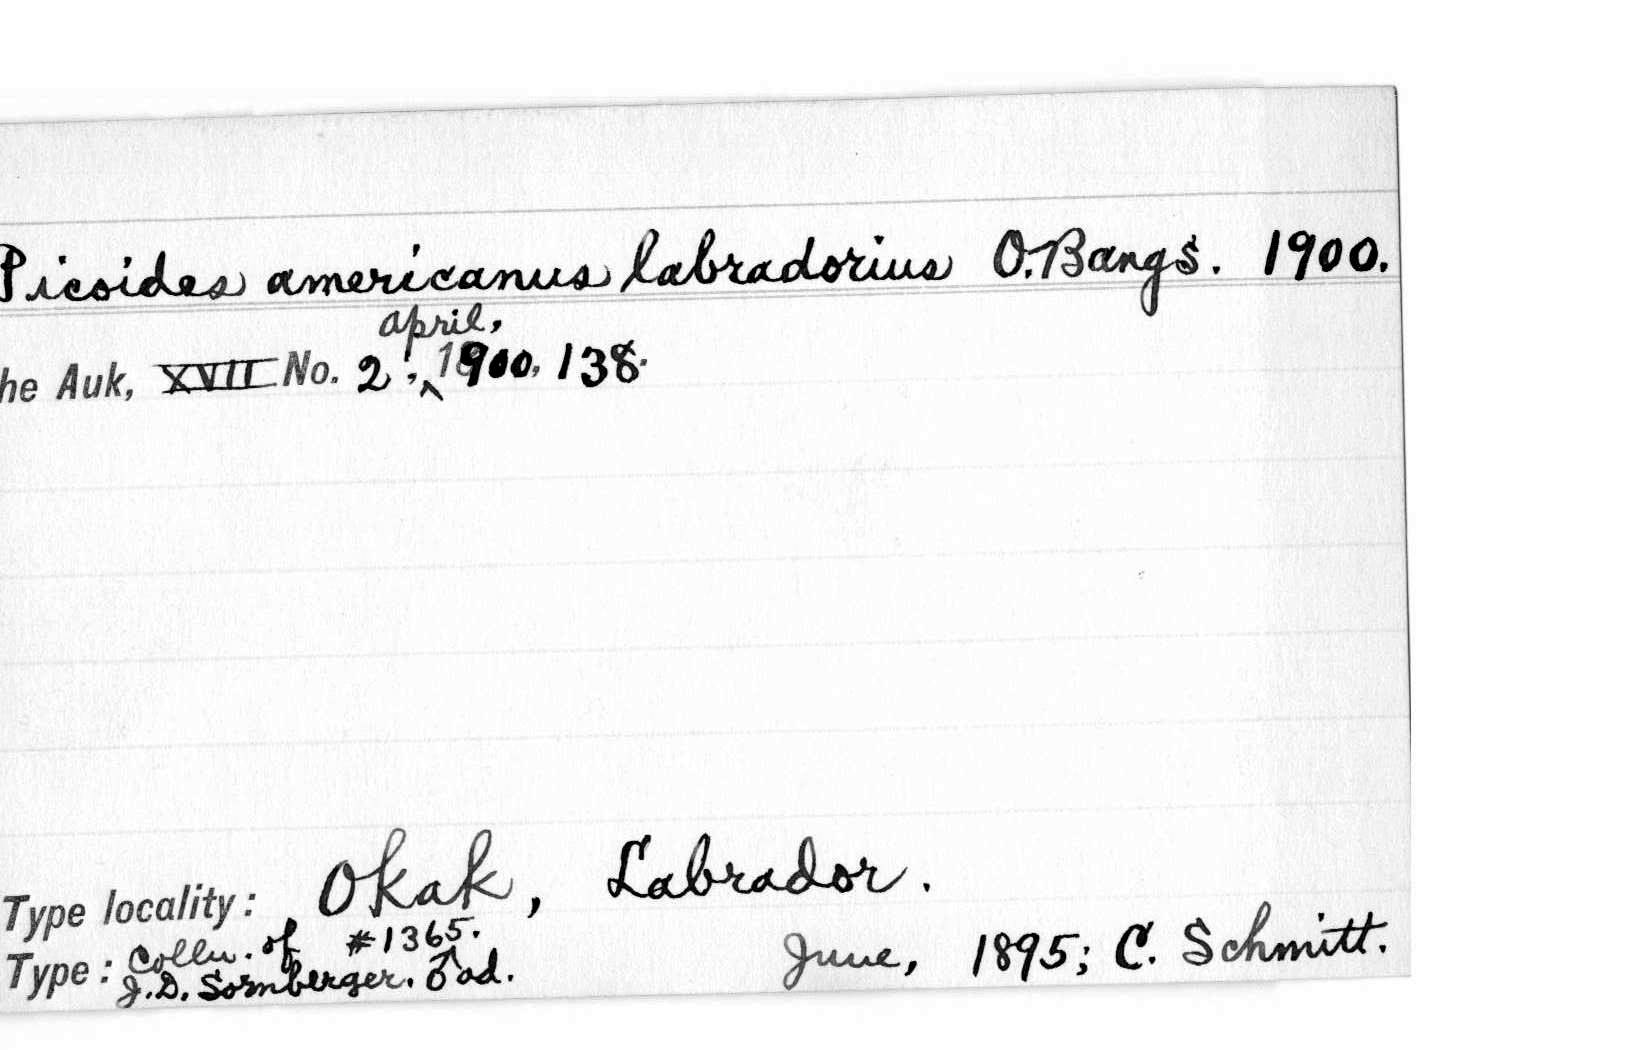 Picoides americanus labradorius O. Bangs. 1900.
april,
he Auk, XVII No. 2, ‸ 1900, 138.
Type locality: Okak, Labrador.
Type: Colln. of #1365. June, 1895; C. Schmitt.
J.D. Sornberger. ♂ ad.